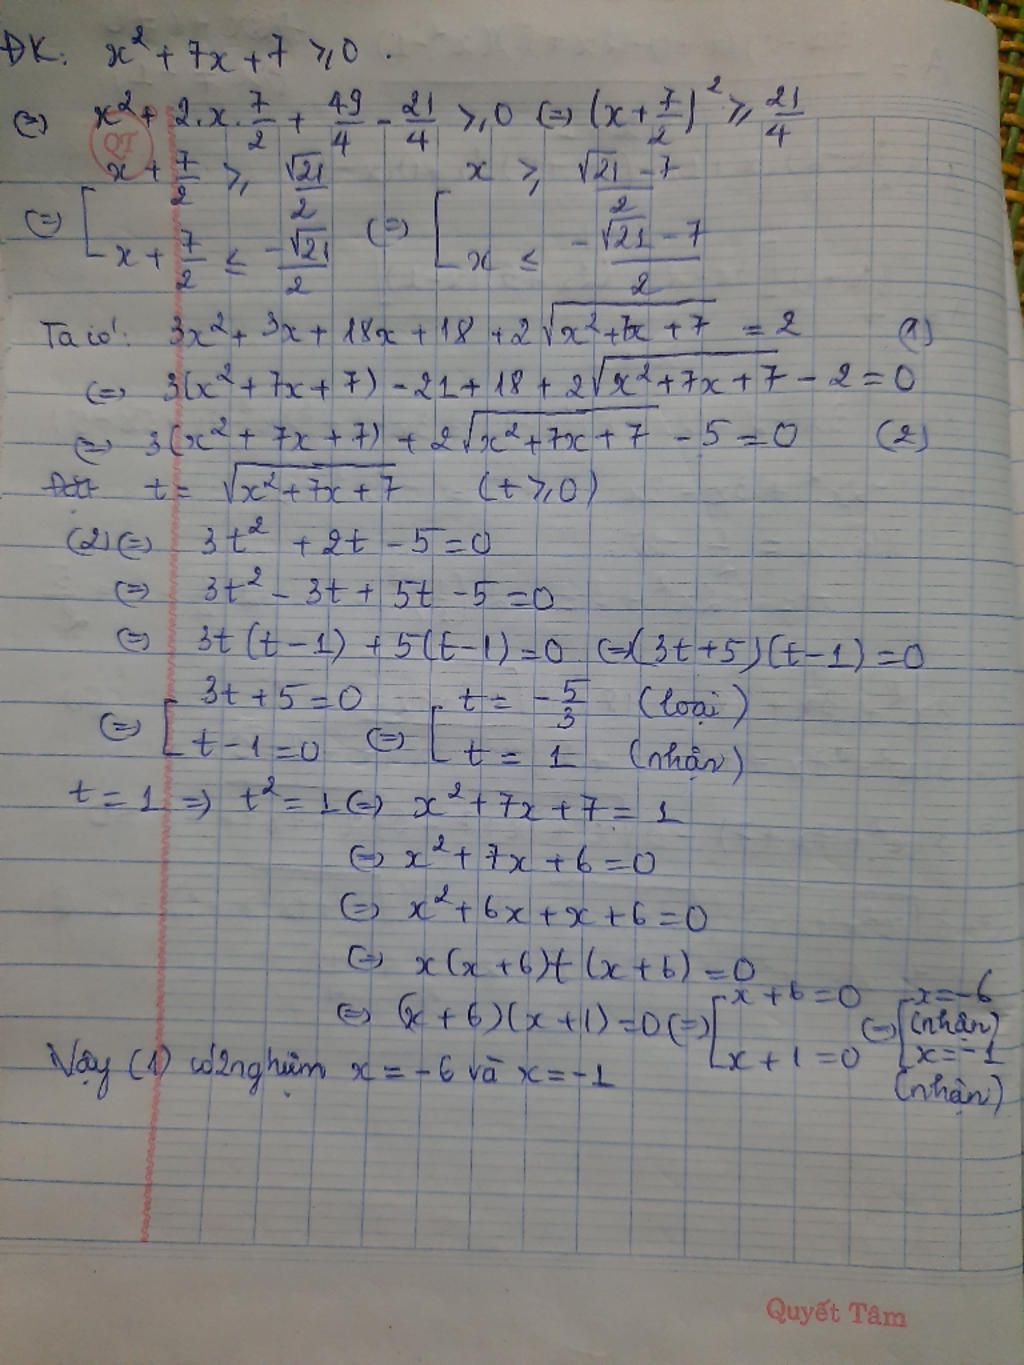 ĐK: x² + 7x + 7 ≥ 0.
⇔ x² + 2.x.7/2 + 49/4 - 21/4 ≥ 0 ⇔ (x + 7/2)² ≥ 21/4
QT
⇔ [ x + 7/2 ≥ √21/2 ⇔ [ x ≥ (√21 - 7)/2
x + 7/2 ≤ -√21/2 x ≤ (-√21 - 7)/2
Ta có: 3x² + 3x + 18x + 18 + 2√(x² + 7x + 7) = 2 (1)
⇔ 3(x² + 7x + 7) - 21 + 18 + 2√(x² + 7x + 7) - 2 = 0
⇔ 3(x² + 7x + 7) + 2√(x² + 7x + 7) - 5 = 0 (2)
Đặt t = √(x² + 7x + 7) (t ≥ 0)
(2) ⇔ 3t² + 2t - 5 = 0
⇔ 3t² - 3t + 5t - 5 = 0
⇔ 3t(t - 1) + 5(t - 1) = 0 ⇔ (3t + 5)(t - 1) = 0
⇔ [ 3t + 5 = 0 ⇔ [ t = -5/3 (loại)
t - 1 = 0 t = 1 (nhận)
t = 1 ⇒ t² = 1 ⇔ x² + 7x + 7 = 1
⇔ x² + 7x + 6 = 0
⇔ x² + 6x + x + 6 = 0
⇔ x(x + 6) + (x + 6) = 0
⇔ (x + 6)(x + 1) = 0 ⇔ [ x + 6 = 0 ⇔ [ x = -6 (nhận)
x + 1 = 0 x = -1 (nhận)
Vậy (1) có 2 nghiệm x = -6 và x = -1
Quyết Tâm